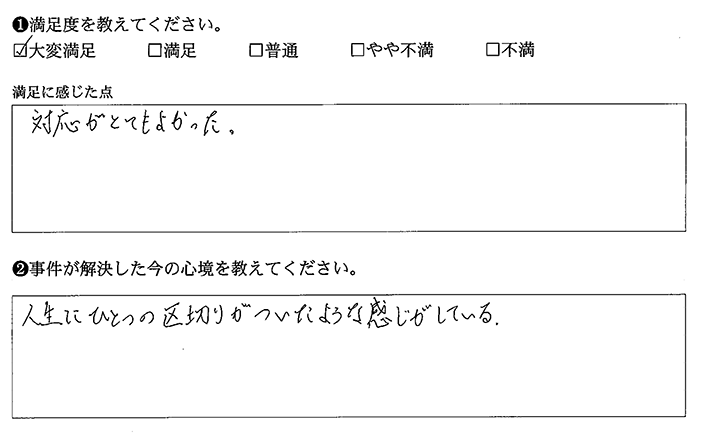 ❶満足度を教えてください。
☑大変満足 □満足 □普通 □やや不満 □不満
満足に感じた点
対応がとてもよかった。
❷事件が解決した今の心境を教えてください。
人生にひとつの区切りがついたような感じがしている.